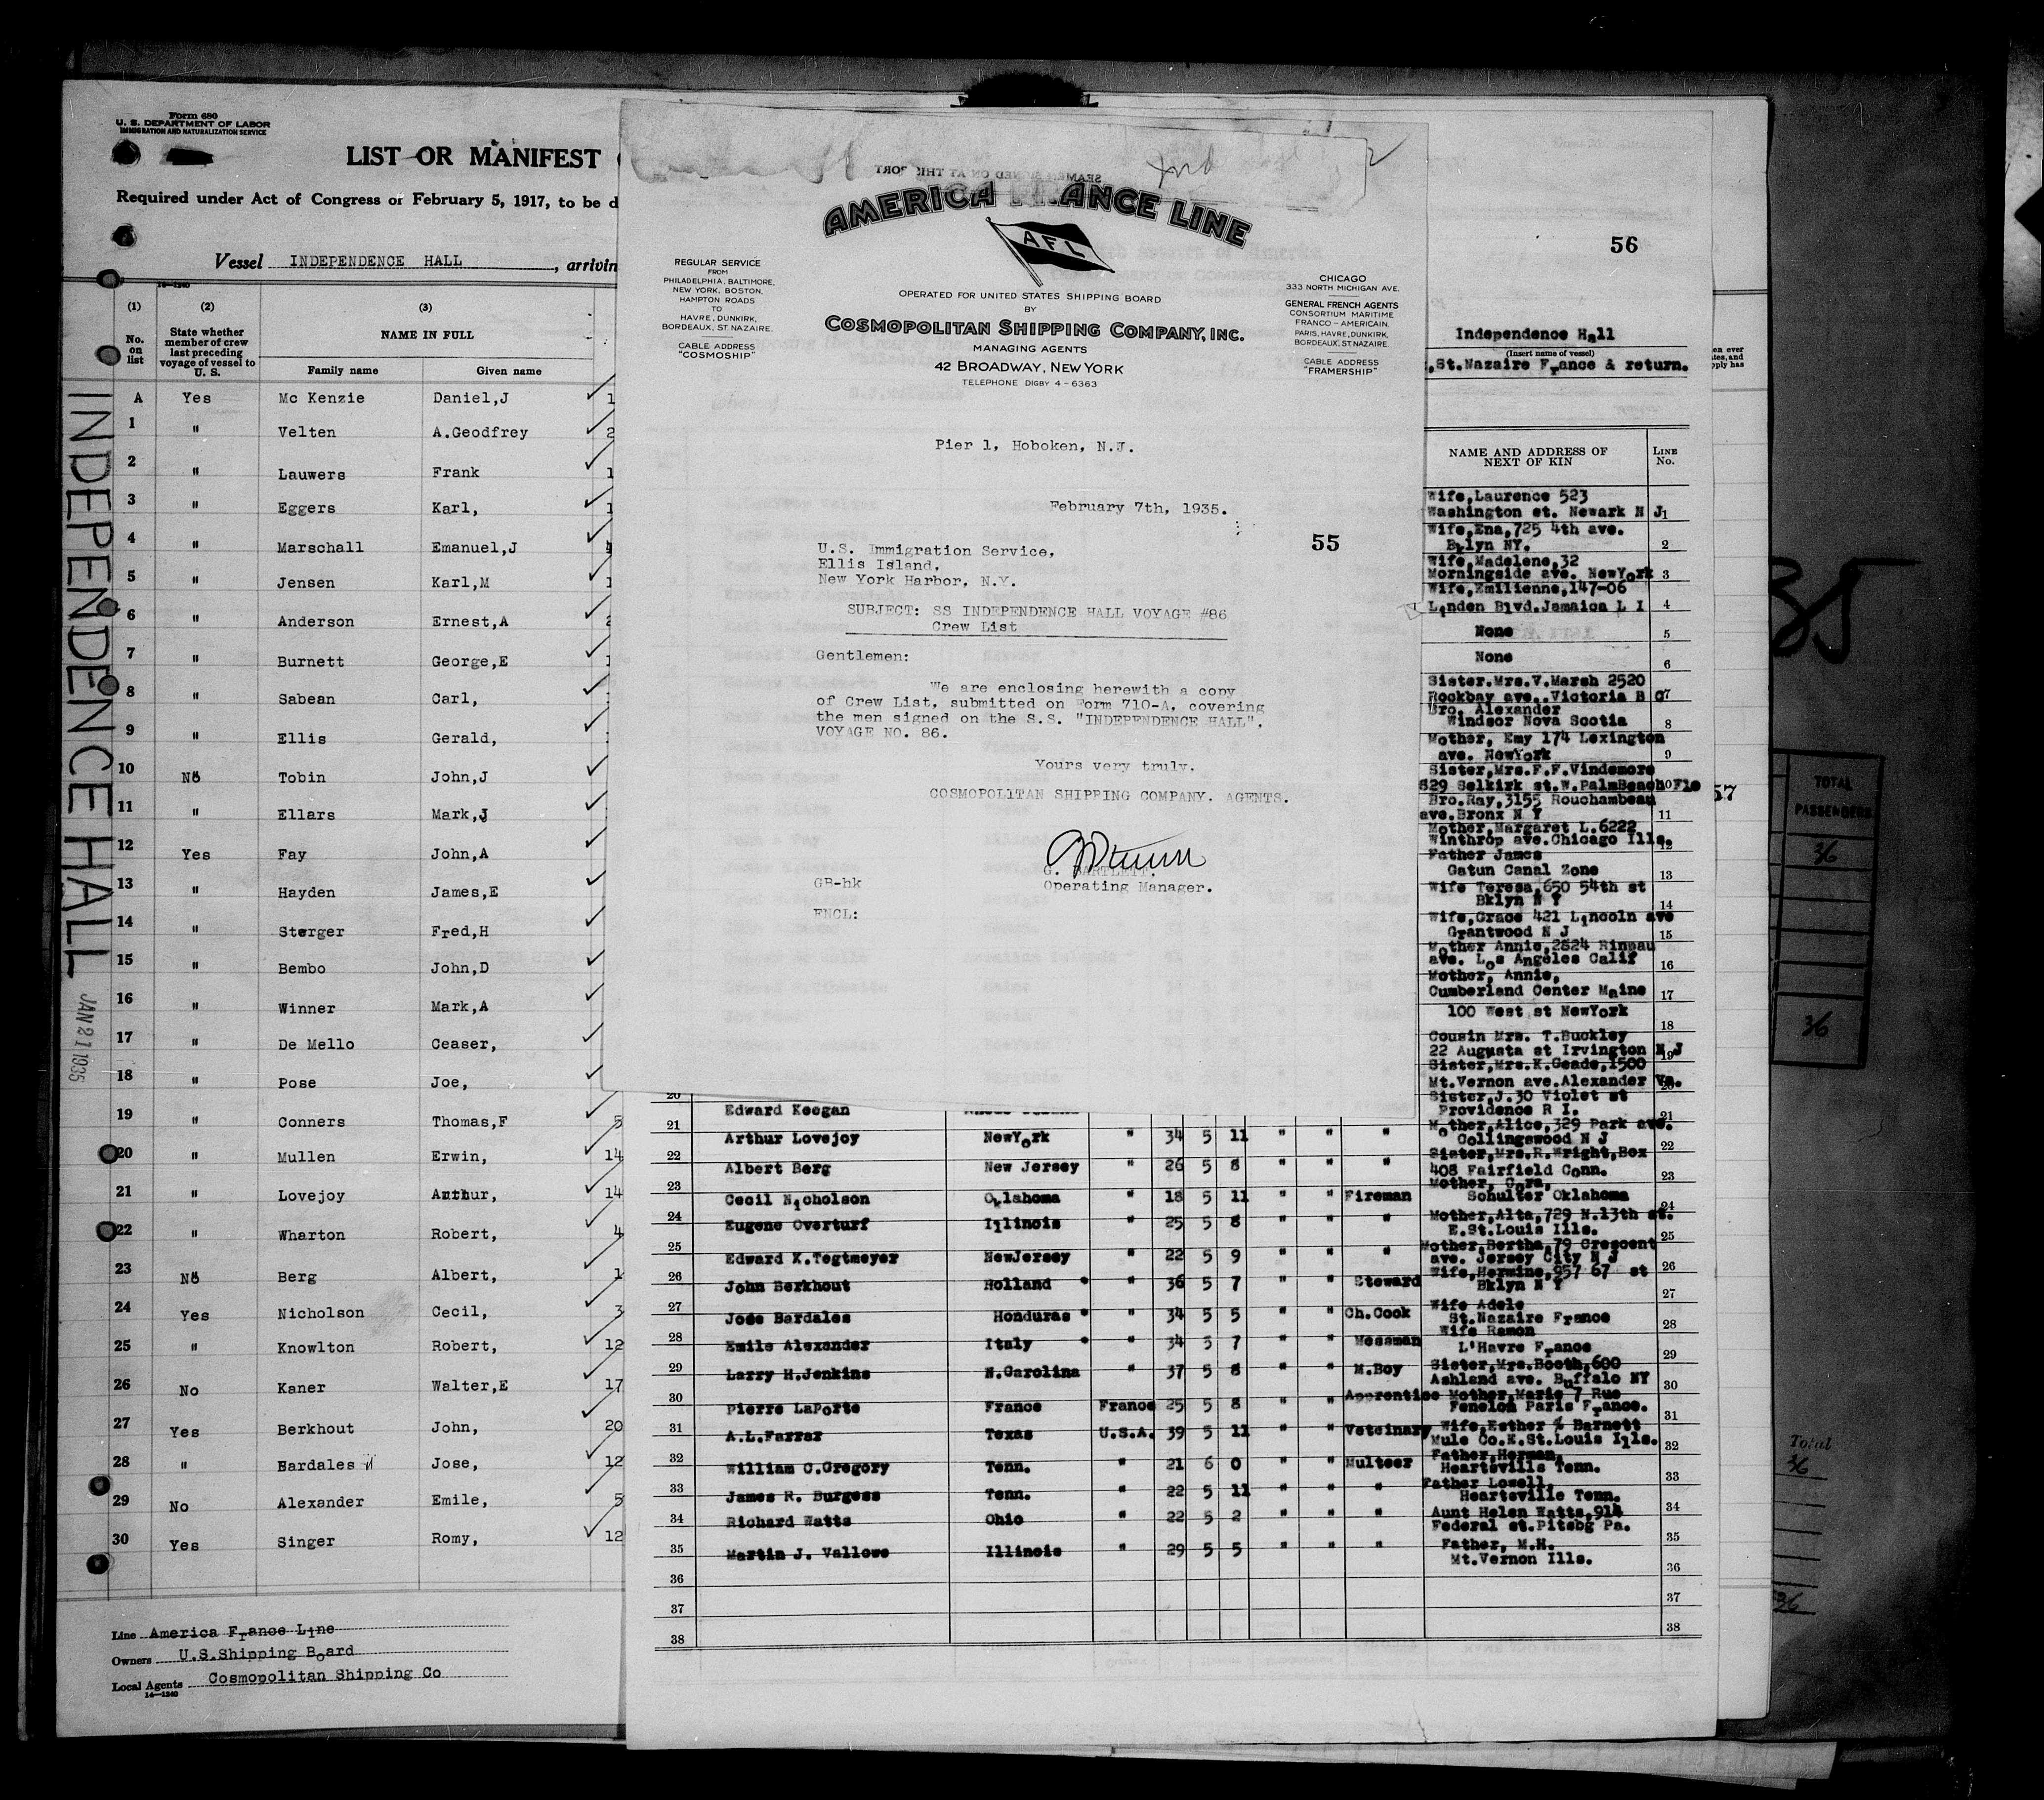 Form 680
U. S. DEPARTMENT OF LABOR
IMMIGRATION AND NATURALIZATION SERVICE
LIST OR MANIFEST
Required under Act of Congress of February 5, 1917, to be d
Vessel INDEPENDENCE HALL, arrivin
(1) (2) (3)
No. on list
State whether member of crew last preceding voyage of vessel to U. S.
NAME IN FULL
Family name Given name
A Yes Mc Kenzie Daniel,J 1
1 " Velten A.Geodfrey 2
2 " Lauwers Frank 1
3 " Eggers Karl, 1
4 " Marschall Emanuel,J
5 " Jensen Karl,M 1
6 " Anderson Ernest,A 2
7 " Burnett George,E
8 " Sabean Carl,
9 " Ellis Gerald,
10 No Tobin John,J
11 " Ellars Mark,J
12 Yes Fay John,A
13 " Hayden James,E
14 " Sterger Fred,H
15 " Bembo John,D
16 " Winner Mark,A
17 " De Mello Ceaser,
18 " Pose Joe,
19 " Conners Thomas,F 5
20 " Mullen Erwin, 14
21 " Lovejoy Arthur, 14
22 " Wharton Robert, 4
23 No Berg Albert, 1
24 Yes Nicholson Cecil, 3
25 " Knowlton Robert, 12
26 No Kaner Walter,E 17
27 Yes Berkhout John, 20
28 " Bardales Jose, 12
29 No Alexander Emile, 5
30 Yes Singer Romy, 12
Line America France Line
Owners U.S.Shipping Board
Local Agents Cosmopolitan Shipping Co
14—1240
INDEPENDENCE HALL
JAN 21 1935
SEAMEN SIGNED ON AT THIS PORT
AMERICA ANCE LINE
AFL
REGULAR SERVICE
FROM
PHILADELPHIA, BALTIMORE,
NEW YORK, BOSTON,
HAMPTON ROADS
TO
HAVRE, DUNKIRK,
BORDEAUX, ST NAZAIRE.
CABLE ADDRESS
"COSMOSHIP"
OPERATED FOR UNITED STATES SHIPPING BOARD
BY
COSMOPOLITAN SHIPPING COMPANY, INC.
MANAGING AGENTS
42 BROADWAY, NEW YORK
TELEPHONE DIGBY 4-6363
CHICAGO
333 NORTH MICHIGAN AVE.
GENERAL FRENCH AGENTS
CONSORTIUM MARITIME
FRANCO-AMERICAIN.
PARIS, HAVRE, DUNKIRK,
BORDEAUX, ST.NAZAIRE.
CABLE ADDRESS
"FRAMERSHIP"
Pier 1, Hoboken, N.J.
February 7th, 1935.
55
U.S. Immigration Service,
Ellis Island,
New York Harbor, N.Y.
SUBJECT: SS INDEPENDENCE HALL VOYAGE #86
Crew List
Gentlemen:
We are enclosing herewith a copy
of Crew List, submitted on Form 710-A, covering
the men signed on the S.S. "INDEPENDENCE HALL".
VOYAGE NO. 86.
Yours very truly,
COSMOPOLITAN SHIPPING COMPANY. AGENTS.
G. BARTLETT.
Operating Manager.
GB-hk
ENCL:
56
Independence Hall
(Insert name of vessel)
,St.Nazaire France & return.
NAME AND ADDRESS OF NEXT OF KIN
LINE No.
Wife,Laurence 523
Washington st. Newark N J 1
Wife,Ena,725 4th ave.
Bklyn NY. 2
Wife,Madelene,32
Morningside ave. NewYork 3
Wife,Emilienne,147-06
Linden Blvd.Jamaica L I 4
None 5
None 6
Sister.Mrs.V.Marsh 2520
Rockbay ave..Victoria B C 7
Bro. Alexander
Windsor Nova Scotia 8
Mother, Emy 174 Lexington
ave. NewYork 9
Sister,Mrs.F.F.Vindemore
829 Selkirk st.W.PalmBeach Flo
Bro.Ray,3155 Rouchambeau
ave.Bronx N Y 11
Mother,Margaret L.6222
Winthrop ave.Chicago Ills. 12
Father James
Gatun Canal Zone 13
Wife Teresa,650 54th st
Bklyn N Y 14
Wife,Grace 421 Lincoln ave
Grantwood N J 15
Mother Annie,2824
ave. Los Angeles Calif 16
Mother, Annie,
Cumberland Center Maine 17
100 West st NewYork 18
Cousin Mrs. T.Buckley
22 Augusta st Irvington N J 19
Sister,Mrs.K.Geade,1500
Mt.Vernon ave.Alexander Va. 20
Sister,J.30 Violet st
Providence R I. 21
Mother,Alice,329 Park ave.
Collingswood N J 22
Sister,Mrs.R.Wright,Box
408 Fairfield Conn. 23
Mother, Cora,
Schulter Oklahoma 24
Mother,Alta,729 N.13th st.
E.St.Louis Ills. 25
Mother,Bertha,79 Crescent
ave. Jersey City N J 26
Wife,Hermine,957 67 st
Bklyn N Y 27
Wife Adele
St.Nazaire France 28
Wife Ramon
L'Havre France 29
Sister,Mrs.Booth,600
Ashland ave. Buffalo NY 30
Mother,Marie 7 Rue
Fenelon Paris France. 31
Wife,Esther % Barnett
Mule Co.E.St.Louis Ills. 32
Father,Herman,
Heartsville Tenn. 33
Father Lowell,
Heartsville Tenn. 34
Aunt Helen Watts,914
Federal st.Pitsbg Pa. 35
Father, M.H.
Mt.Vernon Ills. 36
37
38
20 Edward Keegan
21 Arthur Lovejoy NewYork " 34 5 11 " " "
22 Albert Berg New Jersey " 26 5 8 " " "
23 Cecil Nicholson Oklahoma " 18 5 11 " " Fireman
24 Eugene Overturf Illinois " 25 5 8 " "
25 Edward K.Tegtmeyer NewJersey " 22 5 9 " " "
26 John Berkhout Holland " 36 5 7 " " Steward
27 Jose Bardales Honduras " 34 5 5 " " Ch.Cook
28 Emile Alexander Italy " 34 5 7 " Messman
29 Larry H.Jenkins N.Carolina " 37 5 8 " " M.Boy
30 Pierre LaPorte France France 25 5 8 " " Apprentice
31 A.L.Farrar Texas U.S.A. 39 5 11 " " Veteinary
32 William C.Gregory Tenn. " 21 6 0 " " Multeer
33 James R. Burgess Tenn. " 22 5 11 " " "
34 Richard Watts Ohio " 22 5 2 " " "
35 Martin J. Vallowe Illinois " 29 5 5 " " "
36
37
38
57
TOTAL PASSENGERS
36
36
Total
36
36